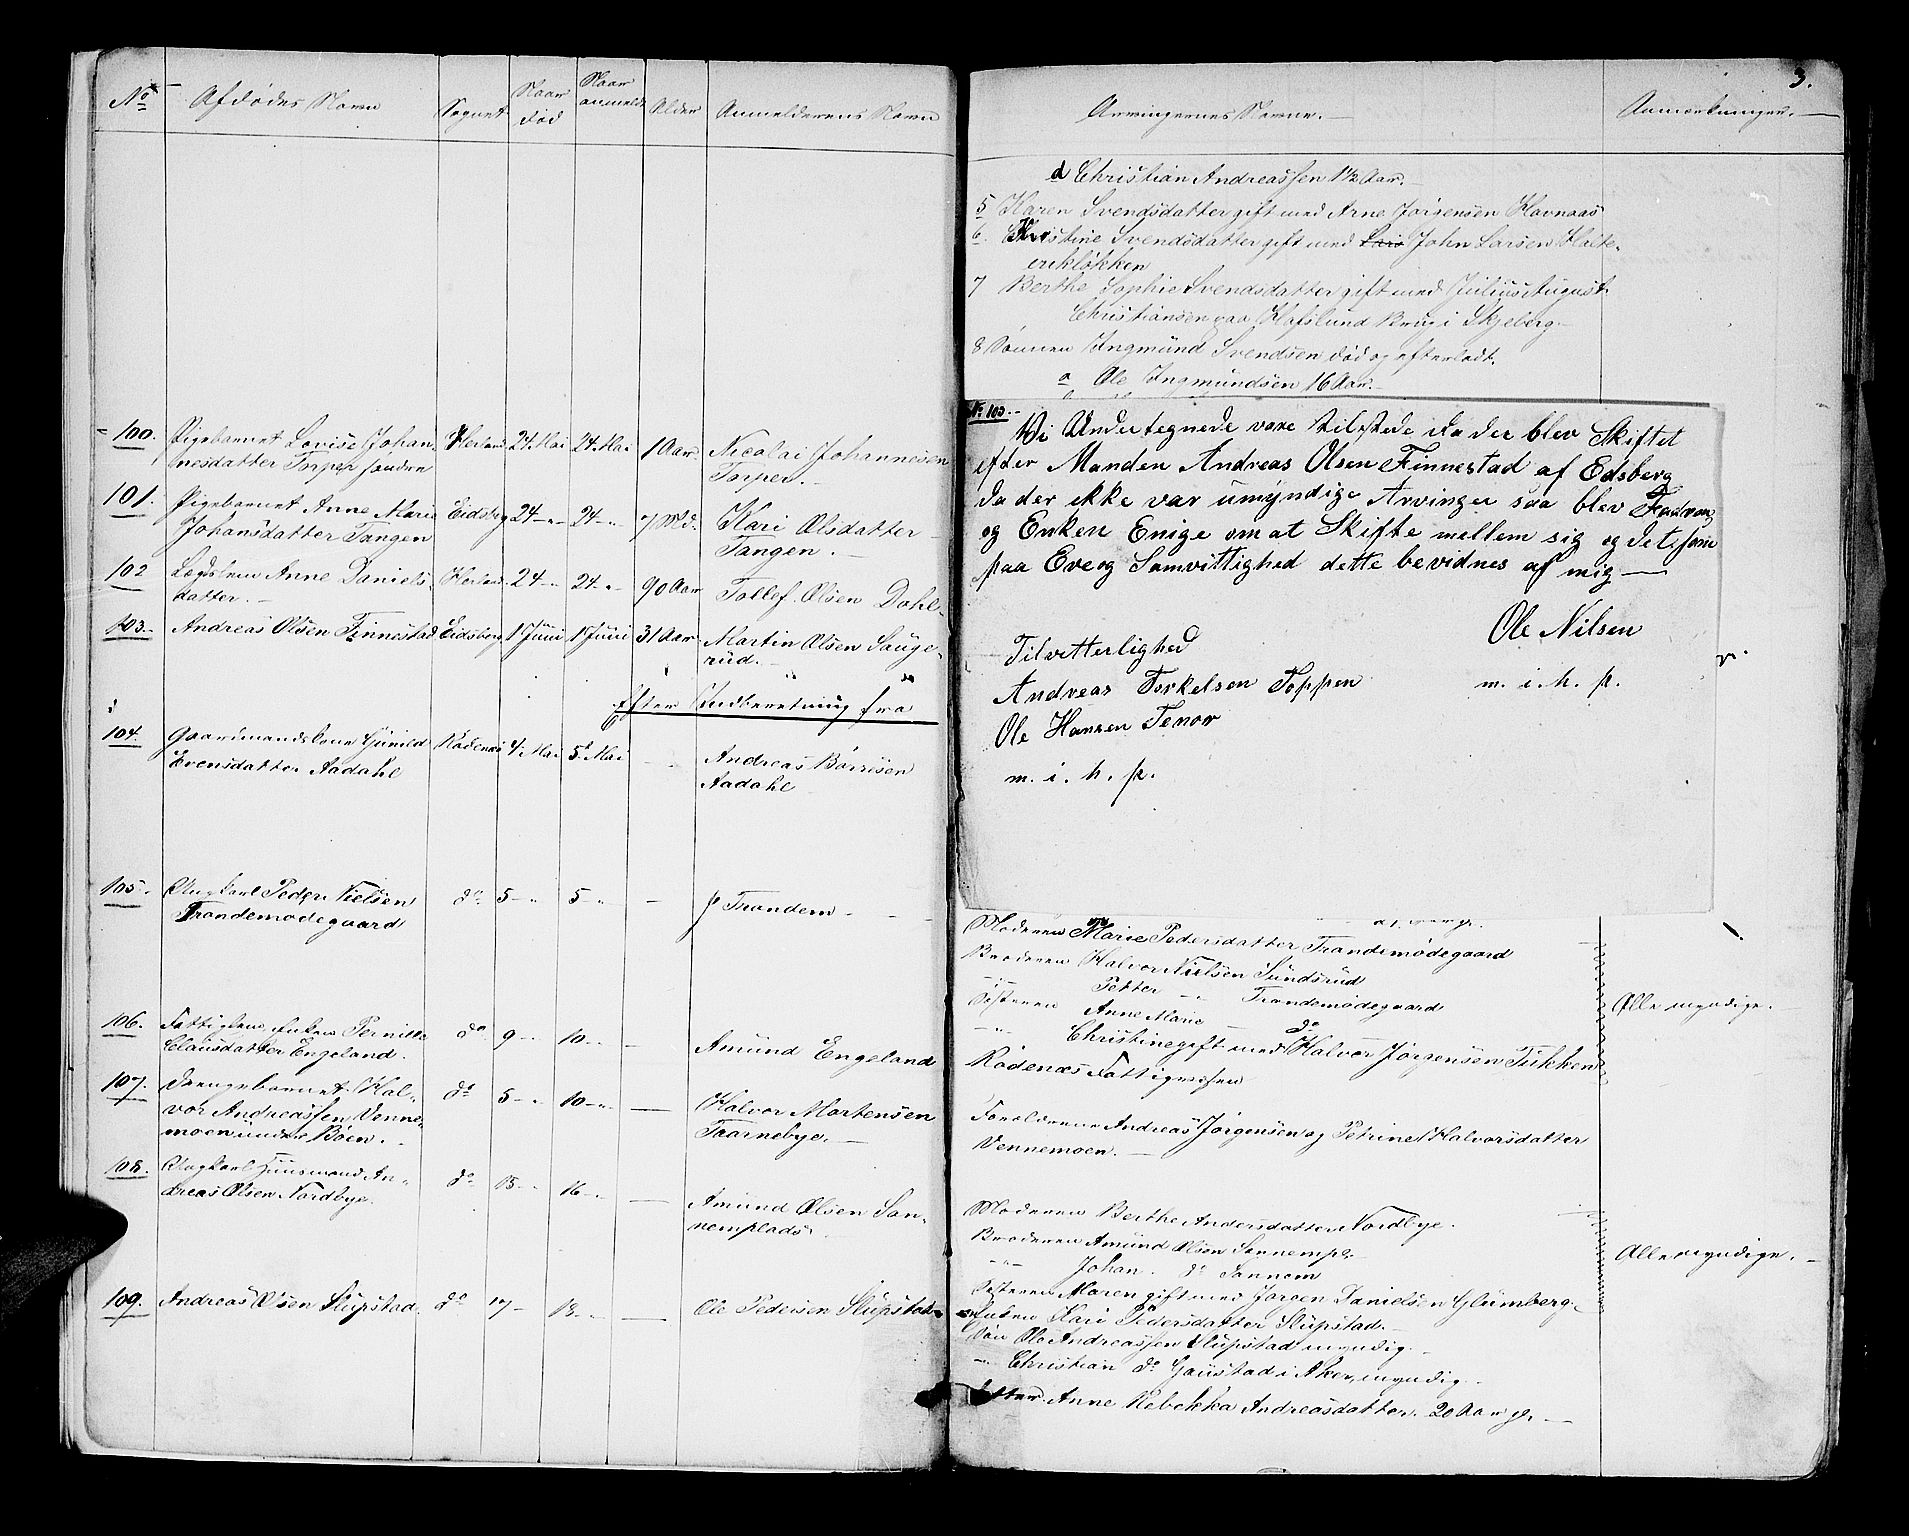 No Afdødes Navn Sognet Naar død Naar anmeldt Alder Anmelderens Navn
100. Pigebarnet Lovise Johan Herland 24. Mai 24. Mai 1 Aar Nicolai Johannesen
nesdatter Torper søndre Torper.
101. Pigebarnet Anne Marie Eidsbg 24 - „ 24 - „ 7 Md. Kari Olsdatter
Johansdatter Tangen Tangen.
102 Lægdslem Anne Daniels Herland 24 - „ 24 - „ 90 Aar Tollef Olsen Dahl
datter.
103. Andreas Olsen Finnestad Eidsberg 1 Juni 1 Juni 31 Aar Martin Olsen Sauge-
rud.
Efter Indberetning fra
104. Gaardmandskone Gunild Rødenæs 4 Mai 5 Mai Andreas Børresen
Evensdatter Aadahl Aadahl
105. Ungkarl Peder Nielsen do 5 - „ 5 - „ - P Trandem
Trandemødegaard
106. Fattiglem, Enken Pernille do 9 - „ 10 - „ - Amund Engeland
Clausdatter Engeland.
107. Drengebarnet Hal- do 5 - „ 10 - „ - Halvor Mortensen
vor Andreassen Venne- Taarnebye.
moen under Böen.
108. Ungkarl Huusmand An- do 15 - „ 16 - „ - Amund Olsen San-
dreas Olsen Nordbye. nemplads
109. Andreas Olsen Slupstad do 17 - 18 - „ - Ole Pedersen Slupstad
3.
Arvingernes Navne. Anmærkninger.
d Christian Andreassen 1½ Aar.
5 Karen Svendsdatter gift med Arne Jørgensen Havnaas
6. Kristine Svendsdatter gift med Lars John Larsen Halte-
erikløkken
7 Berthe Sophie Svendsdatter gift med Julius August
Christiansen paa Hafslund Brug i Skjeberg
8 Sønnen Ingmund Svendsen død og efterladt.
a Ole Ingmundsen 16 Aar.
No 103.
Vi Undertegnede vare tilstede da der blev Skiftet
efter Manden Andreas Olsen Finnestad af Edsberg
da der ikke var umyndige Arvinger saa blev Fadren
og Enken Enige om at Skifte mellem sig og det som
paa Ere og Samvittighed dette bevidnes af mig
Ole Nilsen
Tilvitterlighed
Andreas Torkelsen Toppen m. i. h. p.
Ole Hansen Tenor
m. i. h. p.
Moderen Marie Pedersdatter Trandemødegaard
Broderen Halvor Nielsen Sundsrud
- „ Petter - „ Trandemødegaard Alle myndige.
Søsteren Anne Marie - do
- „ Christine gift med Halvor Jørgensen Tukken
Rødenæs Fattigvæsen
Forældrene Andreas Jørgensen og Petrine Halvorsdatter
Vennemoen.
Moderen Berthe Andersdatter Nordbye.
Broderen Amund Olsen Sannempl.
- „ Johan do Sannem Alle myndige.
Søsteren Maren gift med Jørgen Danielsen Glumberg.
Enken Kari Pedersdatter Slupstad.
Søn Ole Andreassen Slupstad myndig.
- „ Christian do Gaustad i Aker, myndig.
Datter Anne Rebekka Andreasdatter 20 Aar gl.